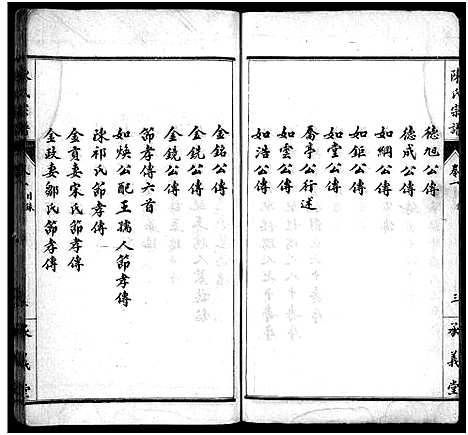 陳氏宗譜
卷一
三
承義堂
德旭公傳
德成公傳
如綱公傳
如鉅公傳
如堂公傳
喬亭公行述
如雲公傳
如浩公傳
金銘公傳
金銑公傳
金鏡公傳
節孝傳六首
如煥公配王孺人節孝傳
陳祁氏節孝傳
金貢妻宋氏節孝傳
金政妻鄒氏節孝傳
目錄
承義堂